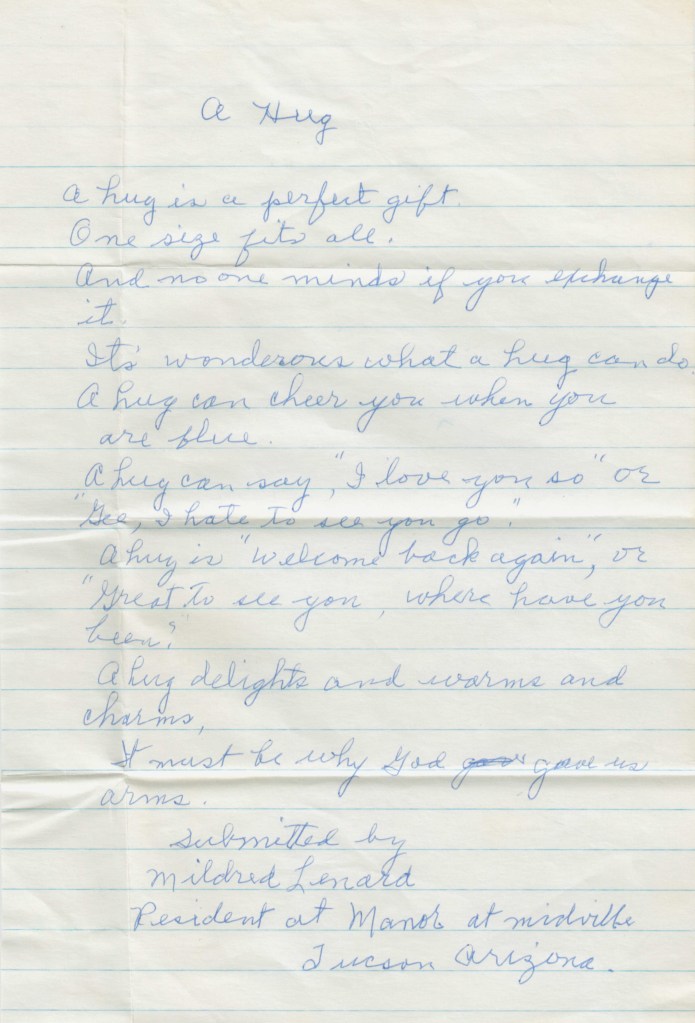 A Hug
A hug is a perfect gift.
One size fits all.
And no one minds if you exchange
it.
It's wonderous what a hug can do.
A hug can cheer you when you
are blue.
A hug can say, "I love you so" or
"Gee, I hate to see you go".
A hug is "Welcome back again", or
"Great to see you, where have you
been?"
A hug delights and warms and
charms,
It must be why God gave us
arms.
Submitted by
Mildred Lenard
Resident at Manor at midvill
Tucson Arizona.